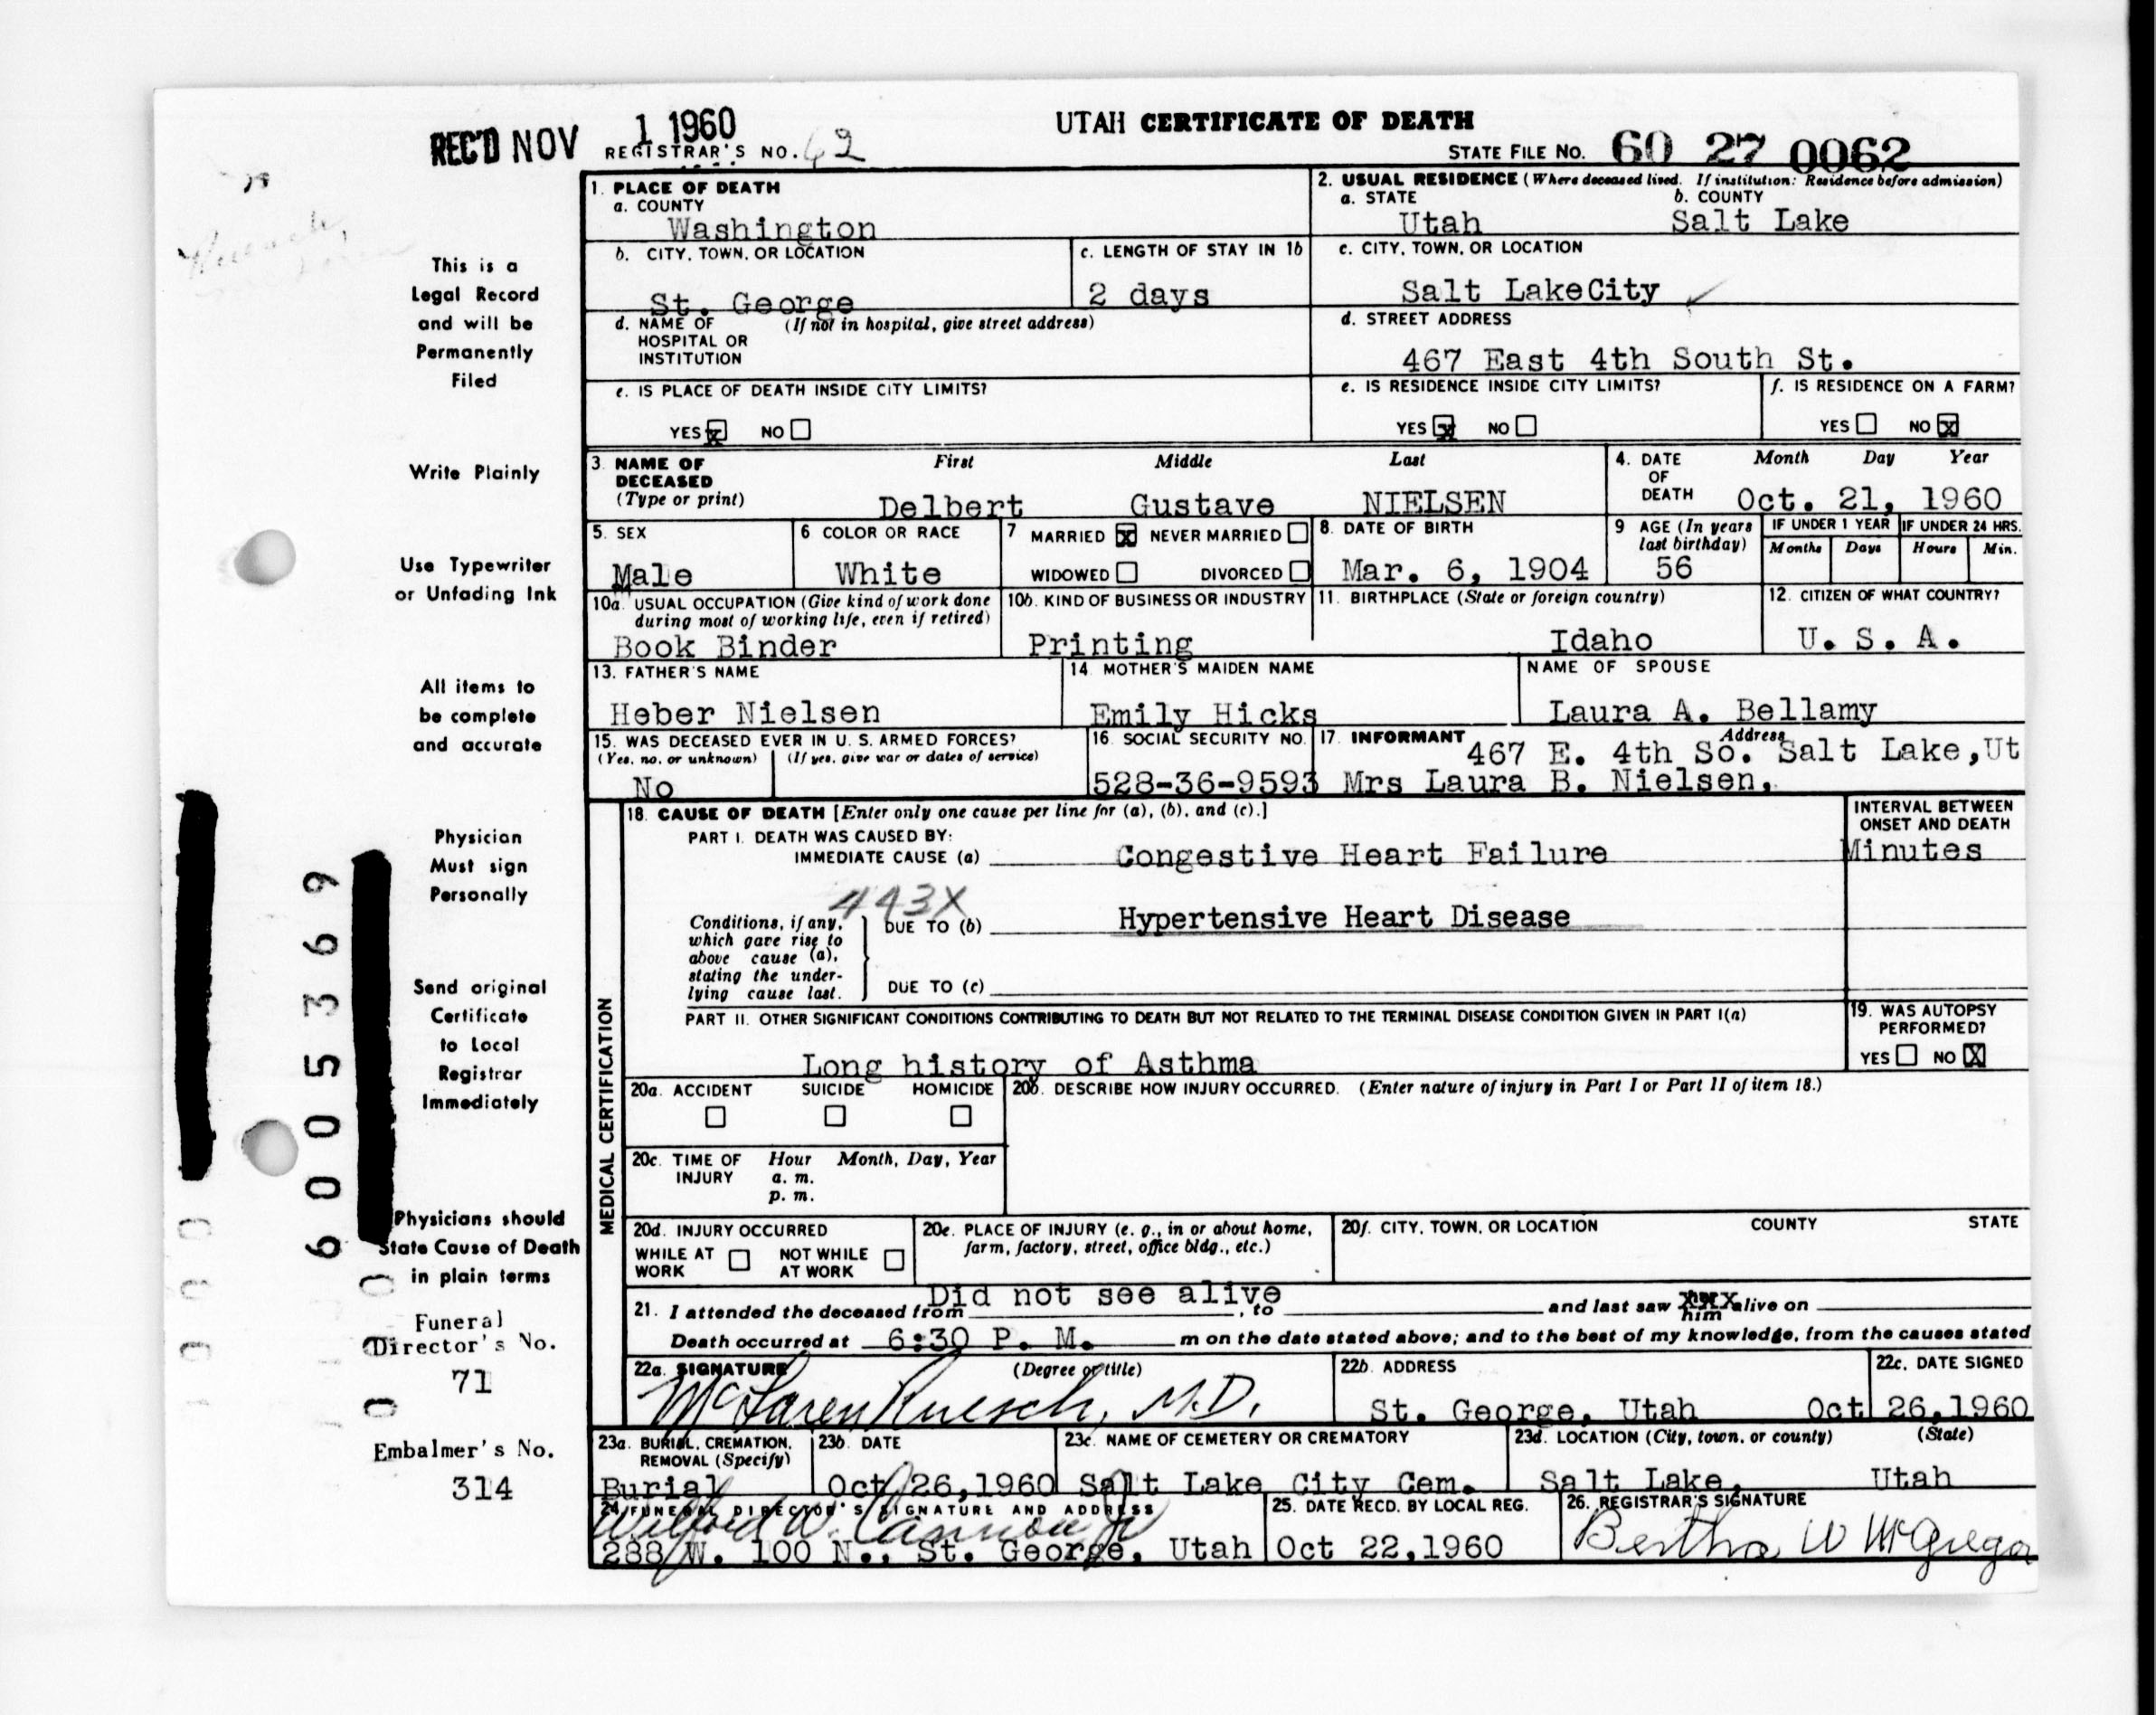 REC'D NOV 1 1960
REGISTRAR'S NO. 62
UTAH CERTIFICATE OF DEATH
STATE FILE NO. 60 27 0062
This is a
Legal Record
and will be
Permanently
Filed
Write Plainly
Use Typewriter
or Unfading Ink
All items to
be complete
and accurate
Physician
Must sign
Personally
Send original
Certificate
to Local
Registrar
Immediately
Physicians should
State Cause of Death
in plain terms
Funeral
Director's No.
71
Embalmer's No.
314
6005369
1. PLACE OF DEATH
a. COUNTY
Washington
2. USUAL RESIDENCE (Where deceased lived. If institution: Residence before admission)
a. STATE b. COUNTY
Utah Salt Lake
b. CITY, TOWN, OR LOCATION
St. George
c. LENGTH OF STAY IN 1b
2 days
c. CITY, TOWN, OR LOCATION
Salt LakeCity
d. NAME OF (If not in hospital, give street address)
HOSPITAL OR
INSTITUTION
d. STREET ADDRESS
467 East 4th South St.
e. IS PLACE OF DEATH INSIDE CITY LIMITS?
YES x NO
e. IS RESIDENCE INSIDE CITY LIMITS?
YES x NO
f. IS RESIDENCE ON A FARM?
YES NO x
3. NAME OF DECEASED (Type or print)
First Middle Last
Delbert Gustave NIELSEN
4. DATE OF DEATH
Month Day Year
Oct. 21, 1960
5. SEX
Male
6 COLOR OR RACE
White
7 MARRIED x NEVER MARRIED
WIDOWED DIVORCED
8. DATE OF BIRTH
Mar. 6, 1904
9 AGE (In years last birthday)
56
IF UNDER 1 YEAR
Months Days
IF UNDER 24 HRS.
Hours Min.
10a. USUAL OCCUPATION (Give kind of work done
during most of working life, even if retired)
Book Binder
10b. KIND OF BUSINESS OR INDUSTRY
Printing
11. BIRTHPLACE (State or foreign country)
Idaho
12. CITIZEN OF WHAT COUNTRY?
U. S. A.
13. FATHER'S NAME
Heber Nielsen
14 MOTHER'S MAIDEN NAME
Emily Hicks
NAME OF SPOUSE
Laura A. Bellamy
15. WAS DECEASED EVER IN U. S. ARMED FORCES?
(Yes, no, or unknown) (If yes, give war or dates of service)
No
16. SOCIAL SECURITY NO.
528-36-9593
17. INFORMANT Address
467 E. 4th So. Salt Lake,Ut
Mrs Laura B. Nielsen,
MEDICAL CERTIFICATION
18. CAUSE OF DEATH [Enter only one cause per line for (a), (b), and (c).]
PART I. DEATH WAS CAUSED BY:
IMMEDIATE CAUSE (a) Congestive Heart Failure
INTERVAL BETWEEN
ONSET AND DEATH
Minutes
443X
Conditions, if any,
which gave rise to
above cause (a),
stating the under-
lying cause last.
DUE TO (b) Hypertensive Heart Disease
DUE TO (c)
PART II. OTHER SIGNIFICANT CONDITIONS CONTRIBUTING TO DEATH BUT NOT RELATED TO THE TERMINAL DISEASE CONDITION GIVEN IN PART I(a)
Long history of Asthma
19. WAS AUTOPSY
PERFORMED?
YES NO X
20a. ACCIDENT SUICIDE HOMICIDE
20b. DESCRIBE HOW INJURY OCCURRED. (Enter nature of injury in Part I or Part II of item 18.)
20c. TIME OF INJURY
Hour Month, Day, Year
a. m.
p. m.
20d. INJURY OCCURRED
WHILE AT WORK NOT WHILE AT WORK
20e. PLACE OF INJURY (e. g., in or about home,
farm, factory, street, office bldg., etc.)
20f. CITY, TOWN, OR LOCATION COUNTY STATE
Did not see alive
21. I attended the deceased from , to and last saw xxx him alive on
Death occurred at 6:30 P. M. m on the date stated above; and to the best of my knowledge, from the causes stated
22a. SIGNATURE (Degree or title)
McLaren Ruesch, M.D.
22b. ADDRESS
St. George, Utah
22c. DATE SIGNED
Oct 26,1960
23a. BURIAL, CREMATION,
REMOVAL (Specify)
Burial
23b. DATE
Oct 26,1960
23c. NAME OF CEMETERY OR CREMATORY
Salt Lake City Cem.
23d. LOCATION (City, town, or county) (State)
Salt Lake, Utah
24. FUNERAL DIRECTOR'S SIGNATURE AND ADDRESS
Wilford W. Cannon Jr
288 W. 100 N., St. George, Utah
25. DATE RECD. BY LOCAL REG.
Oct 22,1960
26. REGISTRAR'S SIGNATURE
Bertha W McGregor